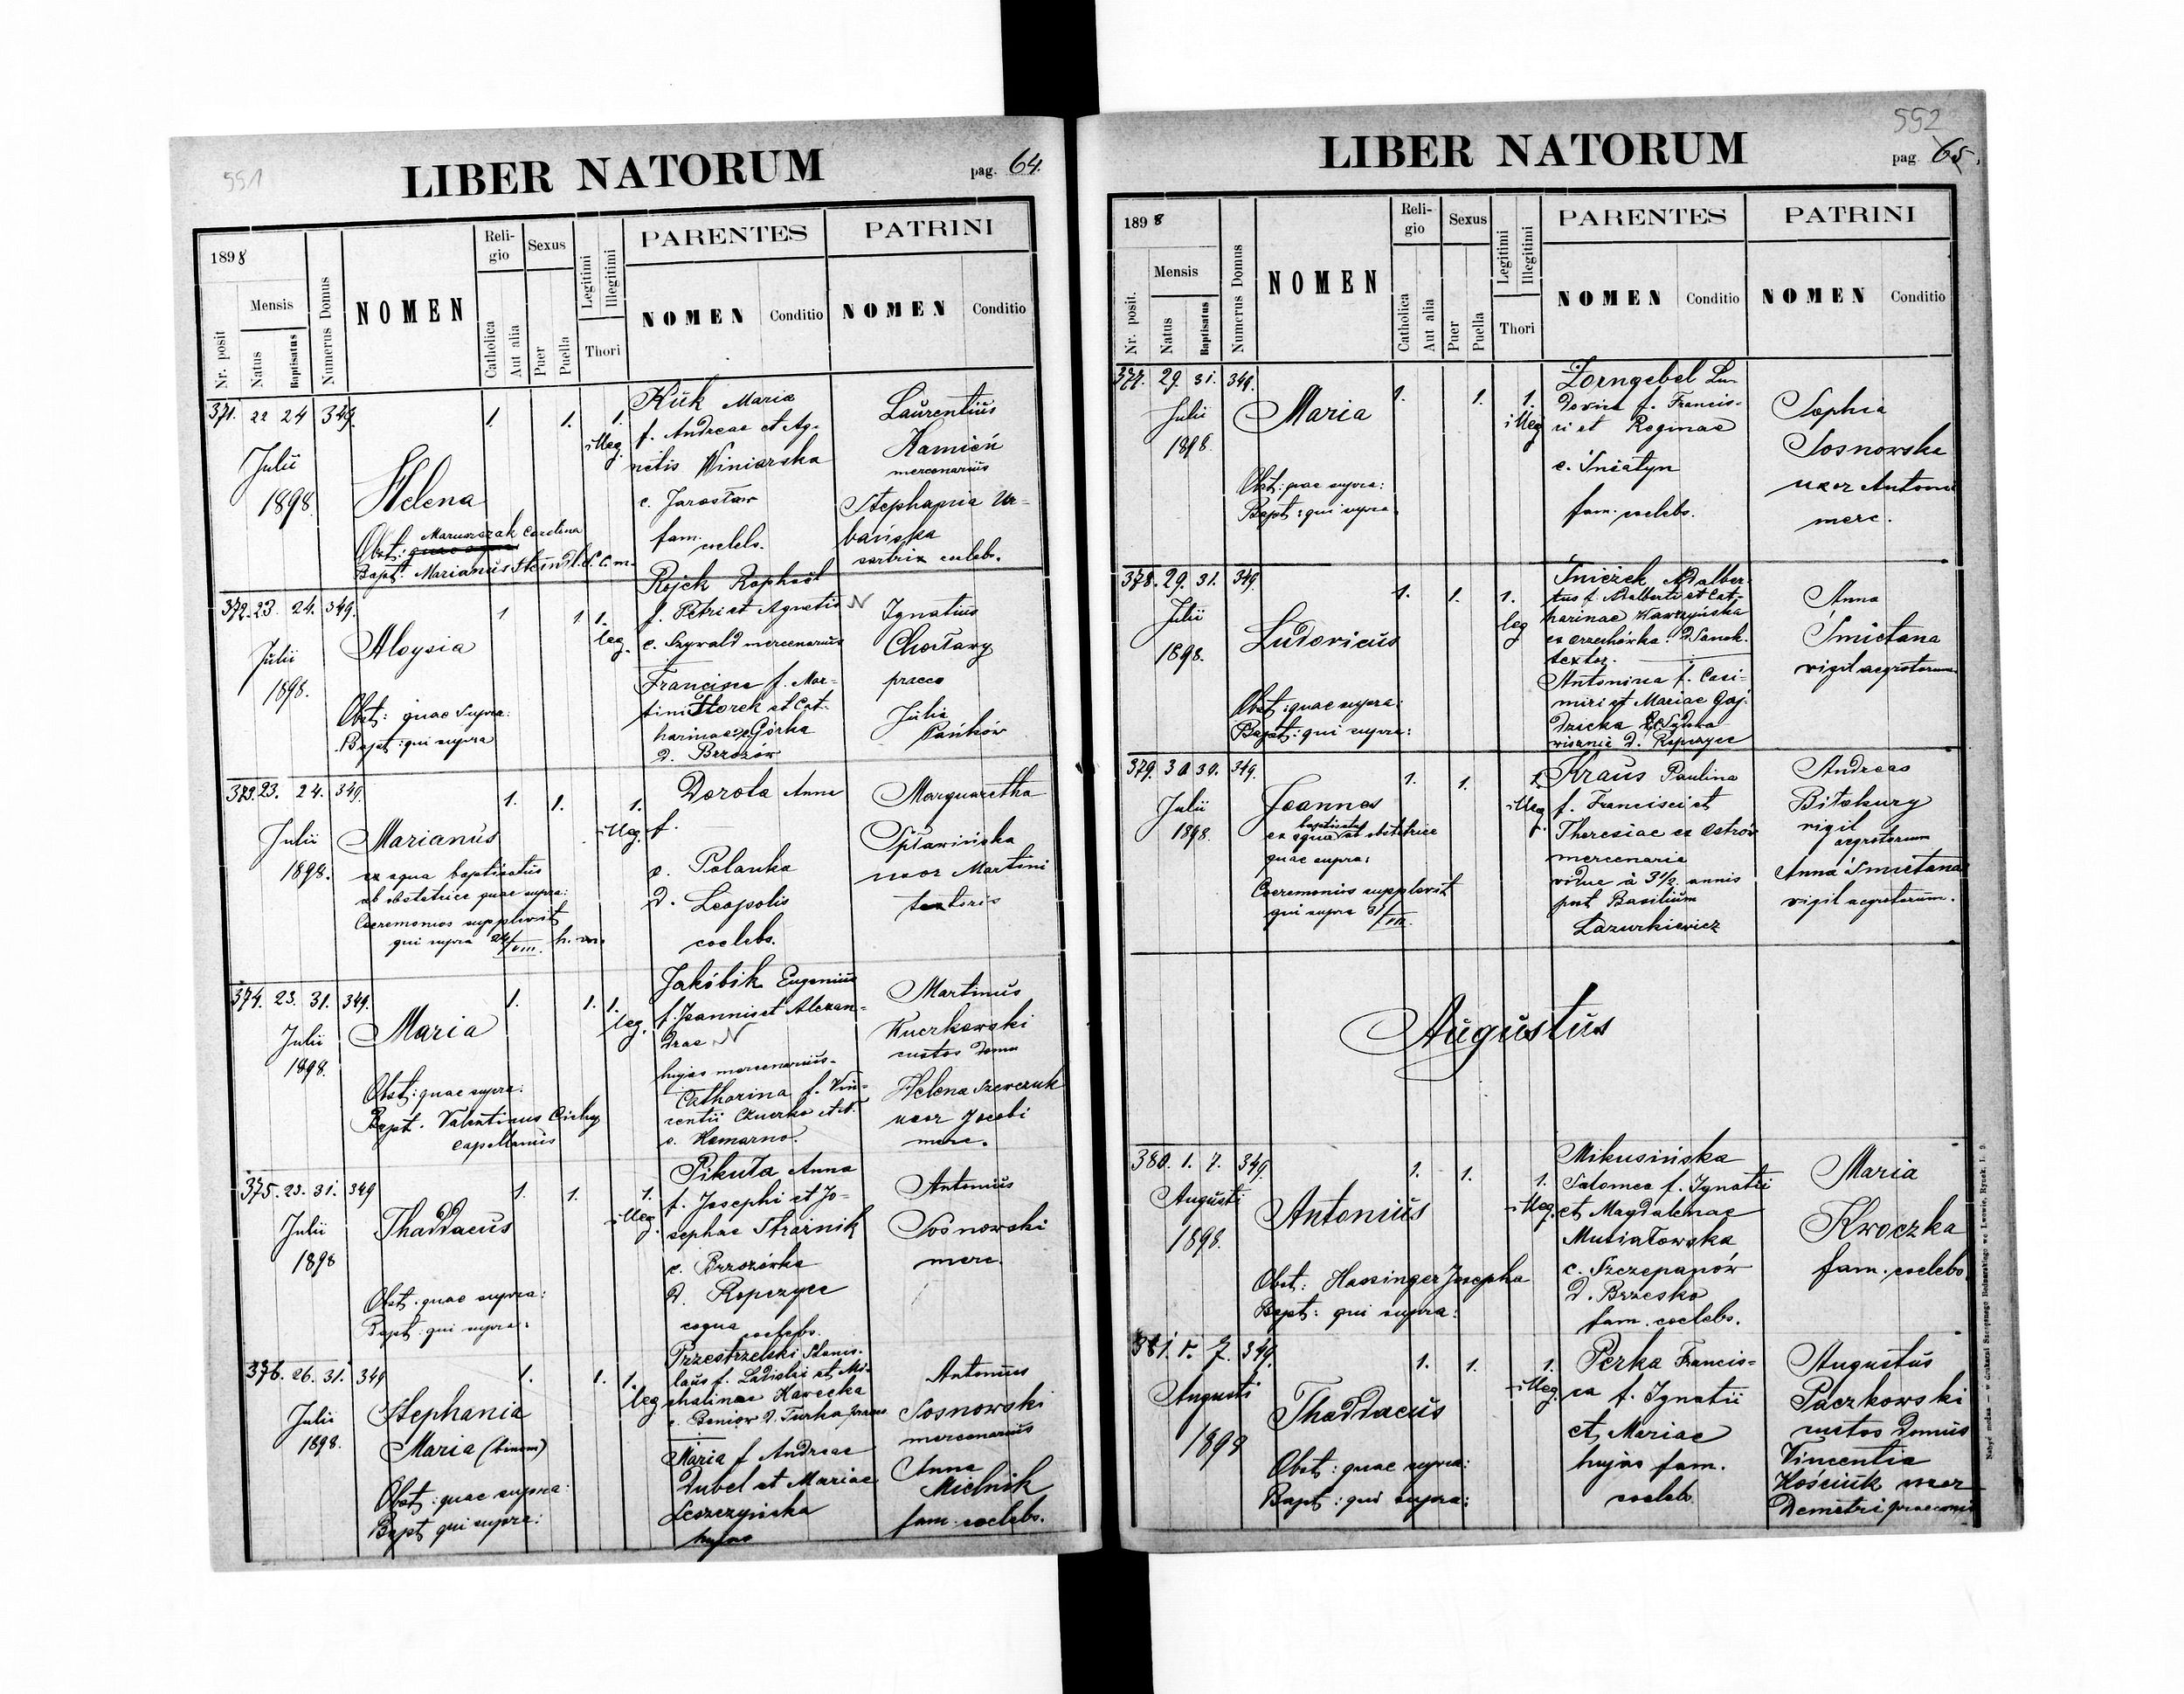 551
LIBER NATORUM
pag. 64.
1898
Nr. posit
Mensis
Natus
Baptisatus
Numerus Domus
NOMEN
Reli-
gio
Catholica
Aut alia
Sexus
Puer
Puella
Legitimi
Illegitimi
Thori
PARENTES
NOMEN
Conditio
PATRINI
NOMEN
Conditio
371. 22 24 349. 1. 1. 1.
Julii
1898.
Helena
Maruszczak Carolina
Obst: quae supra
Bapt. Marianus
illeg.
Kuk Maria
f. Andreae et Ag-
netis Winiarska
e. Jarosław
fam.
coelebs.
Laurentius
Kamień
mercenarius
Stephania Ur-
bańska
sartrix coelebs.
372. 23. 24. 349. 1 1 1.
Julii
1898.
Aloysia
Obst: quae supra:
Bapt: qui supra
leg.
Rojek Raphael
f. Petri et Agnetis N
e. Szywald mercenarius
Francisca f. Mar-
tini Storek et Cat-
harinae Górka
d. Brzozów
Ignatius
Chortary
praeco
Julia
Pańków
373. 23. 24. 349. 1. 1. 1.
Julii
1898.
Marianus
ex aqua baptisatus
ab obstetrice quae supra:
Caeremonias supplevit
qui supra 24/VIII. h. m.
illeg.
Dorota Anna
f.
e. Polanka
d. Leopolis
coelebs.
Margaretha
Spławińska
uxor Martini
textoris
374. 23. 31. 349. 1. 1. 1.
Julii
1898.
Maria
Obst: quae supra:
Bapt. Valentinus Cichy
capellanus
leg.
Jakóbik Eugenius
f. Joannis et Alexan-
drae N
hujas mercenarius-
Catharina f. Vin-
centii Czuerko et N.
e. Komarno.
Martinus
Kuczkowski
custos domu
Helena Szewczuk
uxor Jacobi
merc.
375. 23. 31. 349 1. 1. 1.
Julii
1898
Thaddaeus
Obst. quae supra:
Bapt: qui supra:
illeg.
Pikuła Anna
f. Josephi et Jo-
sephae Strażnik
e. Brzozówka
d. Ropczyce
coqua coelebs.
Antonius
Sosnowski
merc.
376. 26. 31. 349 1. 1. 1.
Julii
1898.
Stephania
Maria (binom)
Obst: quae supra:
Bapt qui supra:
leg.
Przestrzelski Stanis-
laus f. Ladislai et Mi-
chalinae Harecka
e. Beniow d. Turka
Maria f Andreae
Dubel et Mariae
Leszczyńska
hujas
Antonius
Sosnowski
mercenarius
Anna
Mielnik
fam. coelebs.
552
LIBER NATORUM
pag 65.
1898
Nr. posit.
Mensis
Natus
Baptisatus
Numerus Domus
NOMEN
Reli-
gio
Catholica
Aut alia
Sexus
Puer
Puella
Legitimi
Illegitimi
Thori
PARENTES
NOMEN
Conditio
PATRINI
NOMEN
Conditio
377. 29. 31. 349. 1. 1. 1.
Julii
1898.
Maria
Obst: quae supra:
Bapt: qui supra
illeg
Zorngebel Lu-
dovica f. Francis-
ci et Reginae
e. Śniatyn
fam. coelebs.
Sophia
Sosnowska
uxor Antoni
merc.
378. 29. 31. 349. 1. 1. 1.
Julii
1898.
Ludovicus
Obst: quae supra:
Bapt: qui supra:
leg
Śnieżek Adalber-
tus f. Adalberti et Cat-
harinae Wawrzyńska
ex Orzechówka. d Sanok.
textor.
Antonina f. Casi-
miri et Mariae Gaj-
dzicka
d. Ropczyce
Anna
Śmietana
vigil aegrotorum
379. 30 30. 349. 1. 1. 1.
Julii
1898.
Joannes
baptisatus
ex aqua ab obstetrice
quae supra:
Caeremonias supplevit
qui supra 31/VII.
illeg.
Kraus Paulina
f. Francisci et
Theresiae ex Ostrów
mercenaria
vidua à 3 1/2 annis
post Basilium
Lazurkiewicz
Andreas
Bitakury
vigil
aegrotorum
Anna Śmietana
vigil aegrotorum.
Augustus
380. 1. 7. 349. 1. 1. 1.
Augusti
1898.
Antonius
Obst: Hassinger Josepha
Bapt: qui supra:
illeg.
Mikusińska
Salomea f. Ignatii
et Magdalenae
Musiałowska
e. Szczepanów
d. Brzesko
fam. coelebs.
Maria
Kwoczka
fam. coelebs.
381. 1. 7. 349. 1. 1. 1.
Augusti
1898
Thaddaeus
Obst: quae supra:
Bapt: qui supra:
illeg.
Perka Francis-
ca f. Ignatii
et Mariae
hujas fam.
coeleb.
Augustus
Paczkowski
custos domus
Vincentia
Kościuk uxor
Demetri praeconis